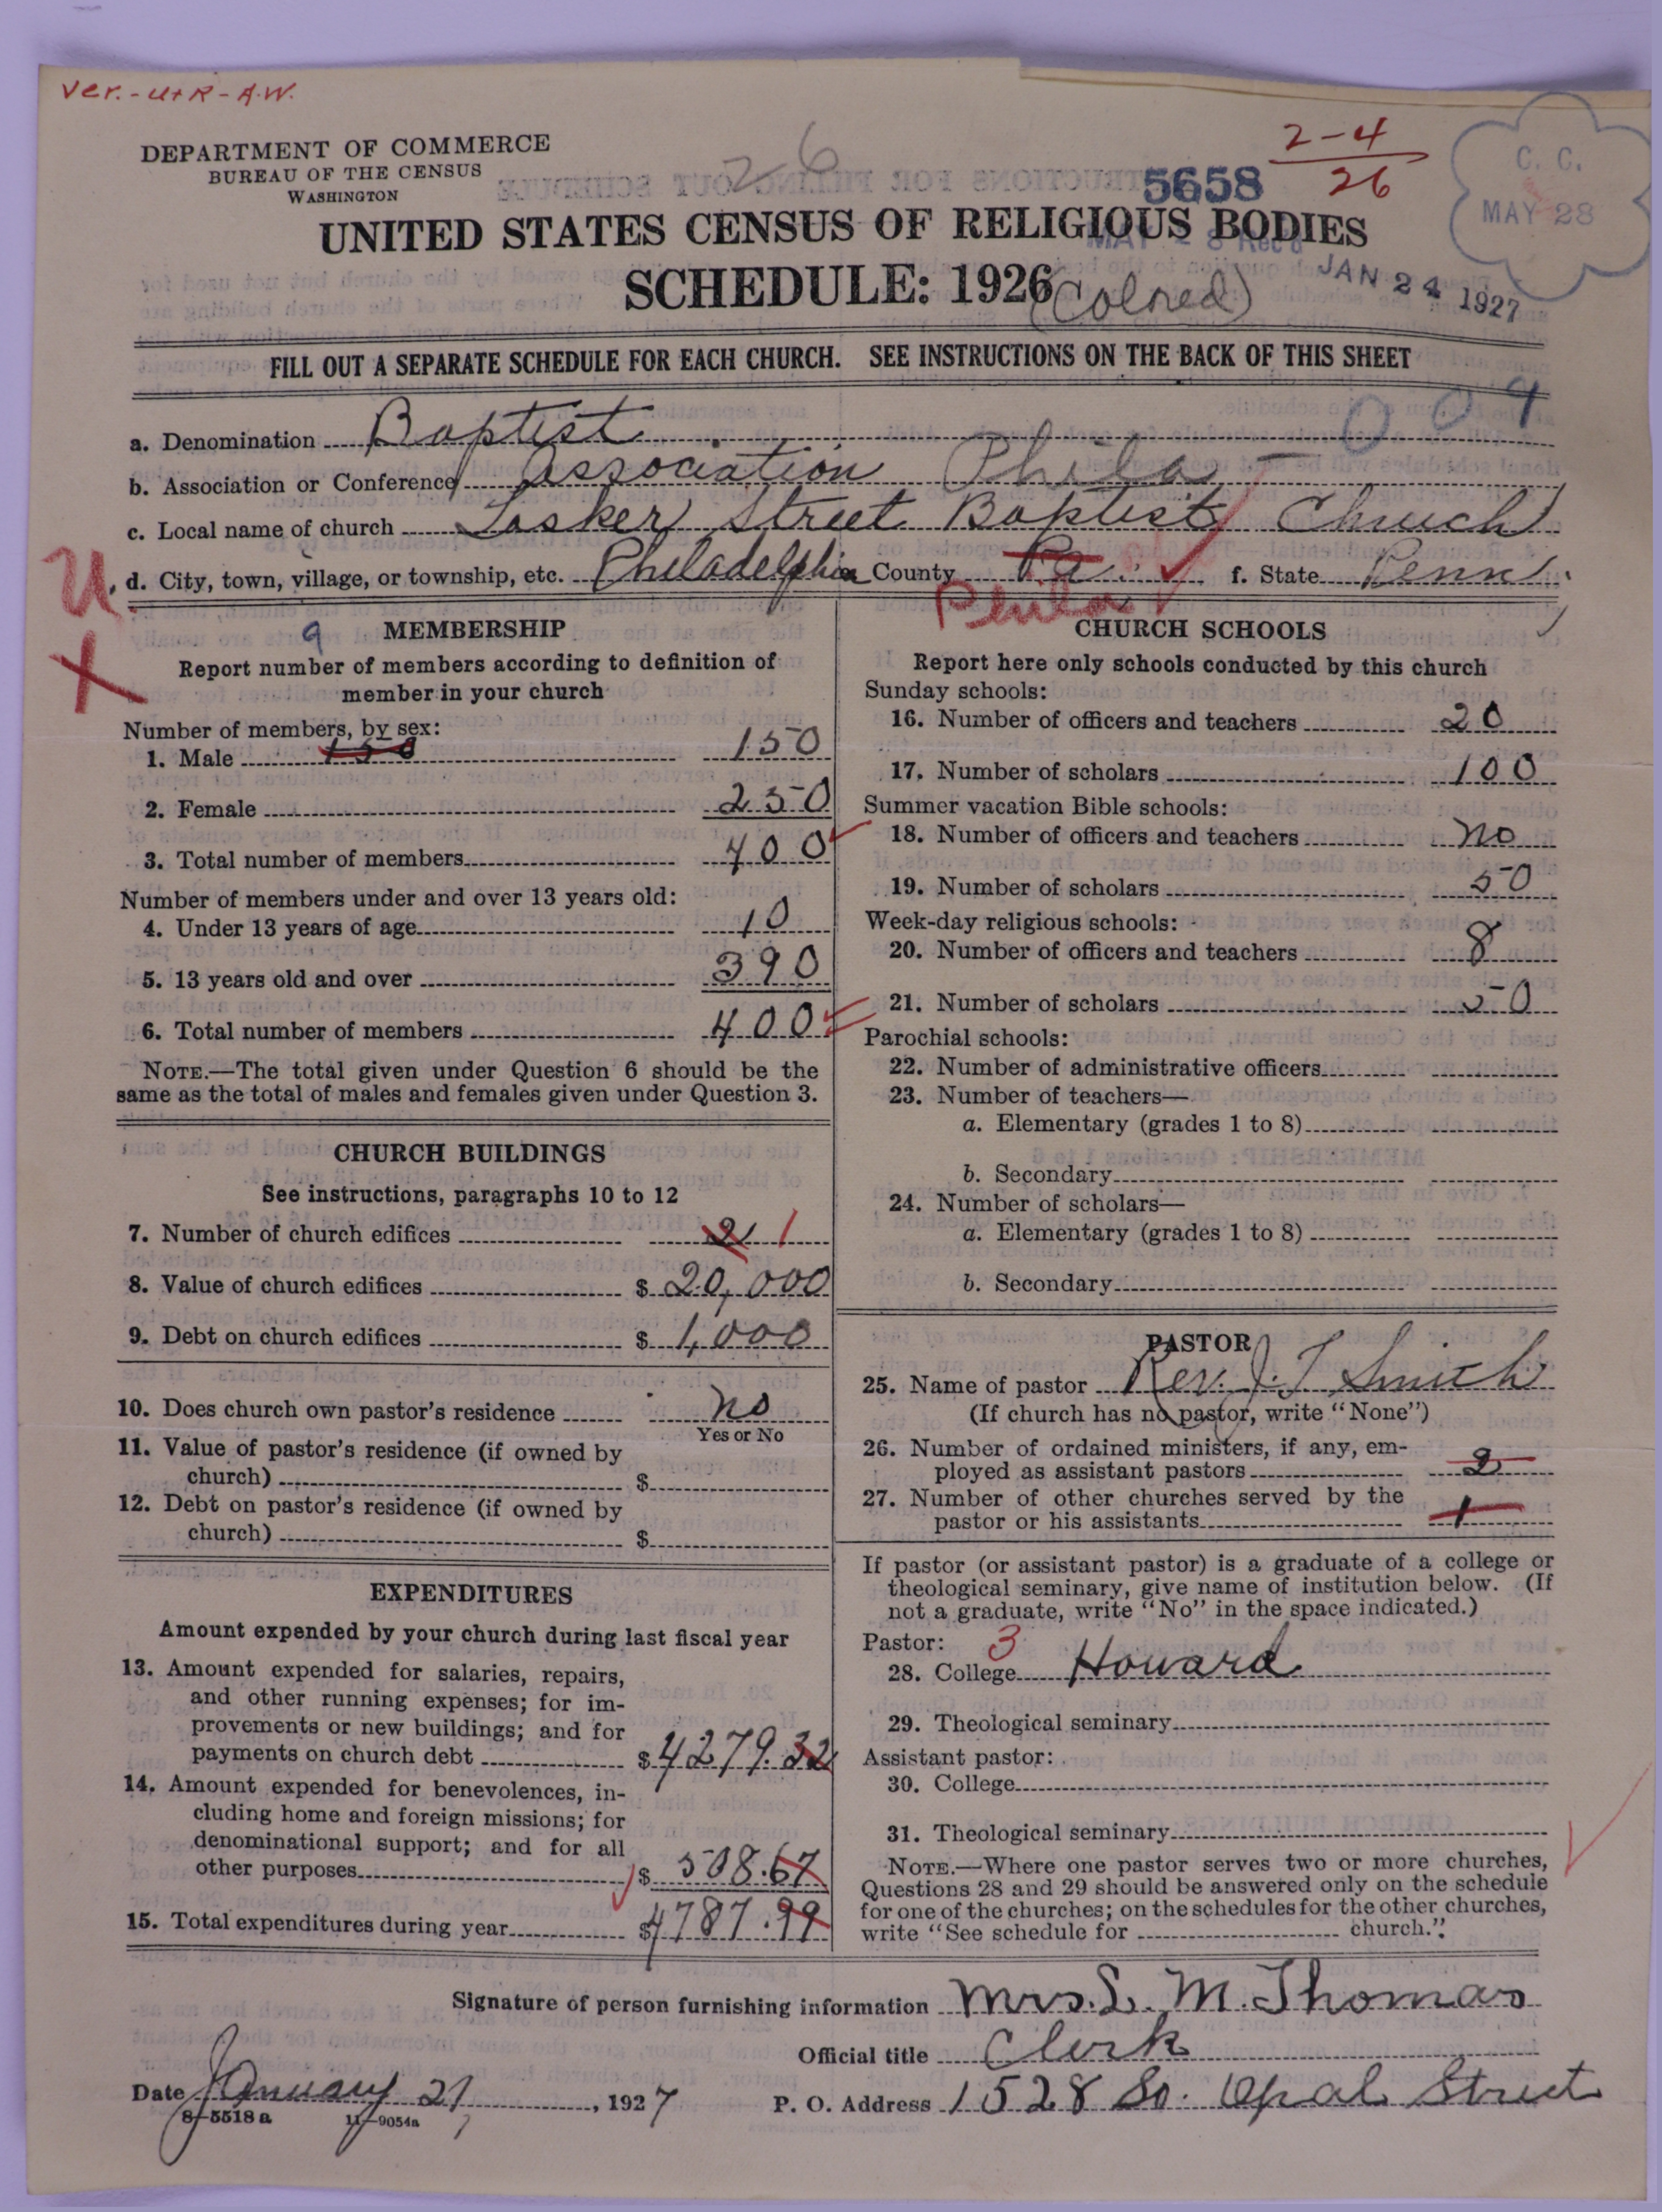 Ver.-U+R-A.W.
DEPARTMENT OF COMMERCE
BUREAU OF THE CENSUS
WASHINGTON
26
5658
2-4
26
C. C.
MAY 28
UNITED STATES CENSUS OF RELIGIOUS BODIES
SCHEDULE: 1926 (Colored)
JAN 24 1927
FILL OUT A SEPARATE SCHEDULE FOR EACH CHURCH. SEE INSTRUCTIONS ON THE BACK OF THIS SHEET
009
a. Denomination Baptist
b. Association or Conference Association Phila
c. Local name of church Tasker Street Baptist Church
d. City, town, village, or township, etc. Philadelphia County Pa. f. State Penn.
U
X
9
MEMBERSHIP
Report number of members according to definition of
member in your church
Number of members, by sex:
1. Male 150 150
2. Female 250
3. Total number of members 400
Number of members under and over 13 years old:
4. Under 13 years of age 10
5. 13 years old and over 390
6. Total number of members 400
NOTE.—The total given under Question 6 should be the
same as the total of males and females given under Question 3.
CHURCH BUILDINGS
See instructions, paragraphs 10 to 12
7. Number of church edifices 2 1
8. Value of church edifices $ 20,000
9. Debt on church edifices $ 1,000
10. Does church own pastor's residence No
Yes or No
11. Value of pastor's residence (if owned by
church) $
12. Debt on pastor's residence (if owned by
church) $
EXPENDITURES
Amount expended by your church during last fiscal year
13. Amount expended for salaries, repairs,
and other running expenses; for im-
provements or new buildings; and for
payments on church debt $ 4279.32
14. Amount expended for benevolences, in-
cluding home and foreign missions; for
denominational support; and for all
other purposes $ 508.67
15. Total expenditures during year $ 4787.99
CHURCH SCHOOLS
Report here only schools conducted by this church
Sunday schools:
16. Number of officers and teachers 20
17. Number of scholars 100
Summer vacation Bible schools:
18. Number of officers and teachers No
19. Number of scholars 50
Week-day religious schools:
20. Number of officers and teachers 8
21. Number of scholars 50
Parochial schools:
22. Number of administrative officers
23. Number of teachers—
a. Elementary (grades 1 to 8)
b. Secondary
24. Number of scholars—
a. Elementary (grades 1 to 8)
b. Secondary
PASTOR
25. Name of pastor Rev. J. T. Smith
(If church has no pastor, write "None")
26. Number of ordained ministers, if any, em-
ployed as assistant pastors 2
27. Number of other churches served by the
pastor or his assistants 1
If pastor (or assistant pastor) is a graduate of a college or
theological seminary, give name of institution below. (If
not a graduate, write "No" in the space indicated.)
Pastor: 3
28. College Howard
29. Theological seminary
Assistant pastor:
30. College
31. Theological seminary
NOTE.—Where one pastor serves two or more churches,
Questions 28 and 29 should be answered only on the schedule
for one of the churches; on the schedules for the other churches,
write "See schedule for church."
Signature of person furnishing information Mrs. L. M. Thomas
Official title Clerk
Date January 21, 1927 P. O. Address 1528 So. Opal Street
8-5518 a 11-9054a